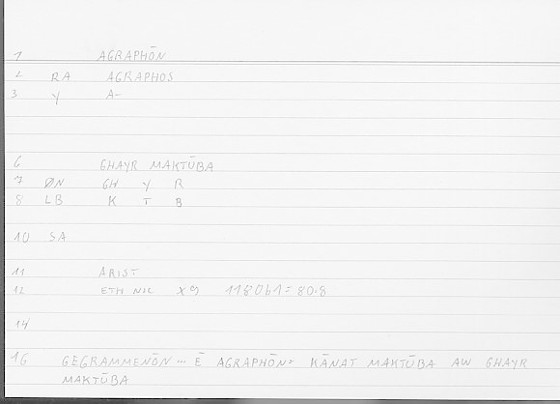 1 AGRAPHŌN
2 RA AGRAPHOS
3 Y A-
6 GHAYR MAKTŪBA
7 ØN GH Y R
8 LB K T B
10 SA
11 ARIST
12 ETH NIC X9 1180b1=80.8
14
16 GEGRAMMENŌN ... Ē AGRAPHŌN= KĀNAT MAKTŪBA AW GHAYR
MAKTŪBA